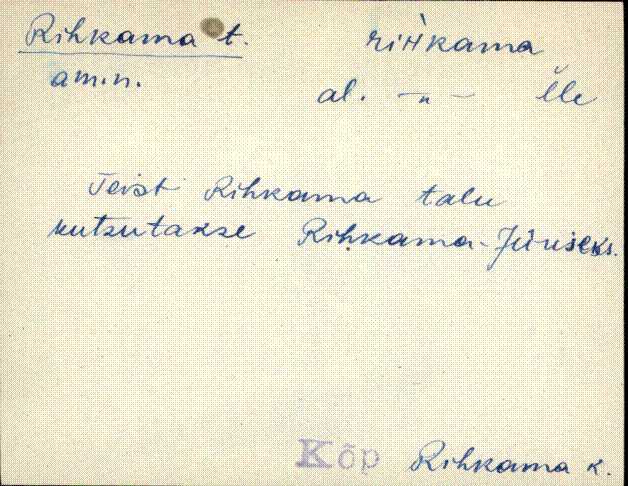 Rihkama t. riHkama
am.n. al. —„— l̆le
Teist Rihkama talu
kutsutakse Rihkama-Jüriseks.
Kõp Rihkama k.